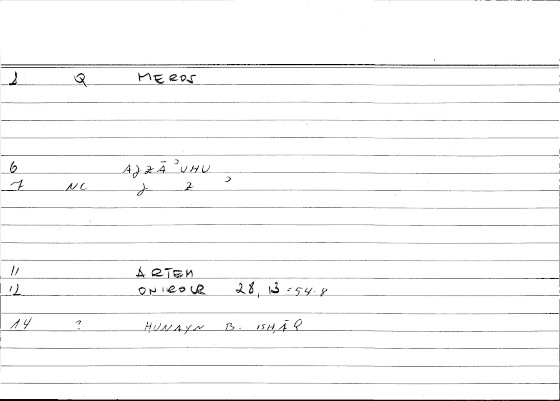 1 Q MEROS
6 AJZĀʾUHU
7 NC J Z ʾ
11 ARTEM
12 ONIROCR 28, 13 = 54.8
14 ? ḤUNAYN B. ISḤĀQ